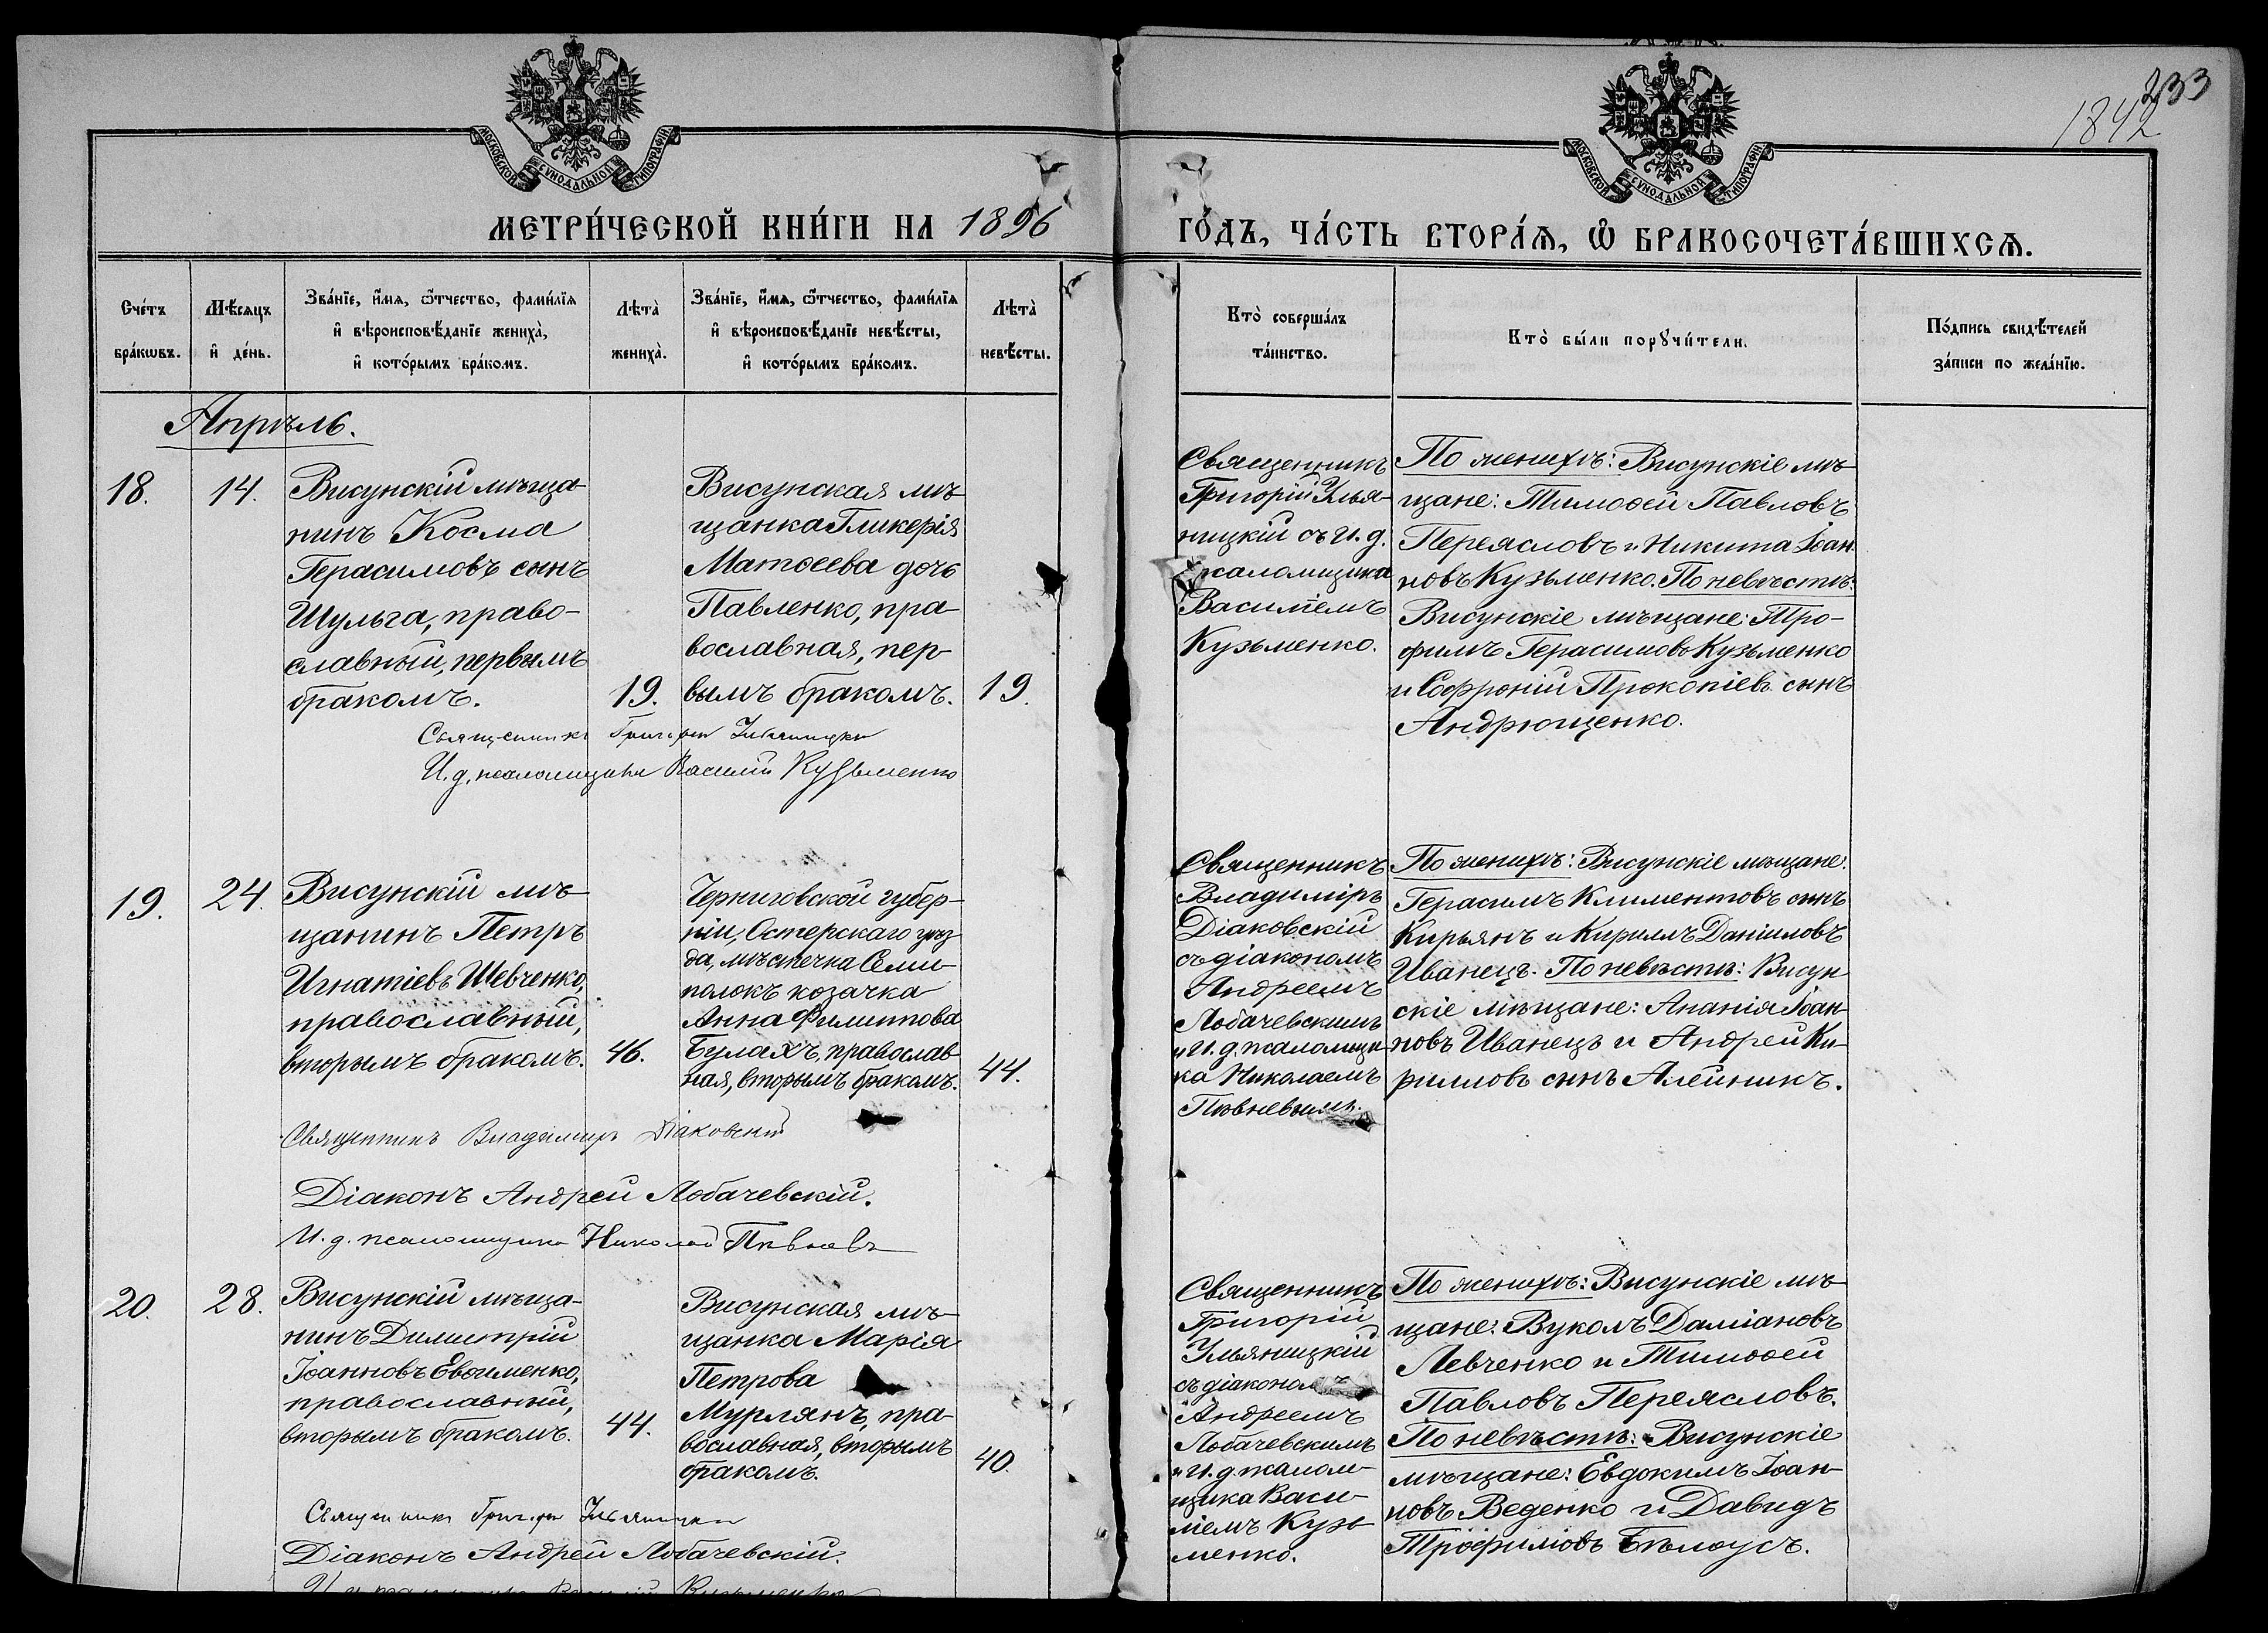 МОСКОВСКОЙ СѴНОДАЛЬНОЙ ТИПОГРАФІИ
МОСКОВСКОЙ СѴНОДАЛЬНОЙ ТИПОГРАФІИ
233
1842
МЕТРИ́ЧЕСКОЙ КНИ́ГИ НА 1896
ГО́ДЪ, ЧА́СТЬ ВТОРА́Ѧ, Ѡ҆ БРАКОСОЧЕТА́ВШИХСѦ.
Сче́тъ
бра́кѡвъ.
Мѣ́сяцъ
и҆ де́нь.
Зва́нїе, и҆́мя, ѻ҆́тчество, фами́лїя
и҆ вѣроисповѣ́данїе жениха̀,
и҆ кото́рымъ бра́комъ.
Лѣта̀
жениха̀.
Зва́нїе, и҆́мя, ѻ҆́тчество, фами́лїя
и҆ вѣроисповѣ́данїе невѣ́сты,
и҆ кото́рымъ бра́комъ.
Лѣта̀
невѣ́сты.
Кто̀ соверша́лъ
та́инство.
Кто̀ бы́ли порꙋчи́тели.
По́дпись свидѣ́телей
за́писи по жела́нїю.
Апрѣль.
18.
14.
Висунскій мѣща-
нинъ Косма
Герасимовъ сынъ
Шульга, право-
славный, первымъ
бракомъ.
19.
Висунская мѣ-
щанка Гликерія
Матѳеева дочь
Павленко, пра-
вославная, пер-
вымъ бракомъ.
19.
Священникъ
Григорій Улья-
ницкій съ И. д.
псаломщика
Василіемъ
Кузьменко.
По женихѣ: Висунскіе мѣ-
щане: Тимоѳей Павловъ
Переясловъ и Никита Іоан-
новъ Кузьменко. По невѣстѣ:
Висунскіе мѣщане: Тро-
фимъ Герасимовъ Кузьменко
и Софроній Прокопіевъ сынъ
Андрющенко.
Священникъ Григорій Ульяницкій
И. д. псаломщика Василій Кузьменко
19.
24.
Висунскій мѣ-
щанинъ Петръ
Игнатіевъ Шевченко,
православный,
вторымъ бракомъ.
46.
Черниговской губер-
ніи, Остерскаго уѣз-
да, мѣстечка Семи-
полокъ козачка
Анна Филиппова
Булахъ, православ-
ная, вторымъ бракомъ.
44.
Священникъ
Владиміръ
Діаковскій
съ діакономъ
Андреемъ
Лобачевскимъ
и И. д. псаломщи-
ка Николаемъ
Пѣвневымъ.
По женихѣ: Висунскіе мѣщане:
Герасимъ Климентовъ сынъ
Кирьянъ и Кириллъ Даніиловъ
Иванецъ. По невѣстѣ: Висун-
скіе мѣщане: Ананія Іоан-
новъ Иванецъ и Андрей Ки-
рилловъ сынъ Алейникъ.
Священникъ Владиміръ Діаковскій
Діаконъ Андрей Лобачевскій.
И. д. псаломщика Николай Пѣвневъ
20.
28.
Висунскій мѣща-
нинъ Димитрій
Іоанновъ Евѳименко,
православный,
вторымъ бракомъ.
44.
Висунская мѣ-
щанка Марія
Петрова
Мурлянъ, пра-
вославная, вторымъ
бракомъ.
40.
Священникъ
Григорій
Ульяницкій
съ діакономъ
Андреемъ
Лобачевскимъ
и И. д. псалом-
щика Васи-
ліемъ Кузь-
менко.
По женихѣ: Висунскіе мѣ-
щане: Вуколъ Даміановъ
Левченко и Тимоѳей
Павловъ Переясловъ.
По невѣстѣ: Висунскіе
мѣщане: Евдокимъ Іоан-
новъ Веденко и Давидъ
Трофимовъ Бѣлоусъ.
Священникъ Григорій Ульяницкій
Діаконъ Андрей Лобачевскій.
И. д. псаломщика Василій Кузьменко